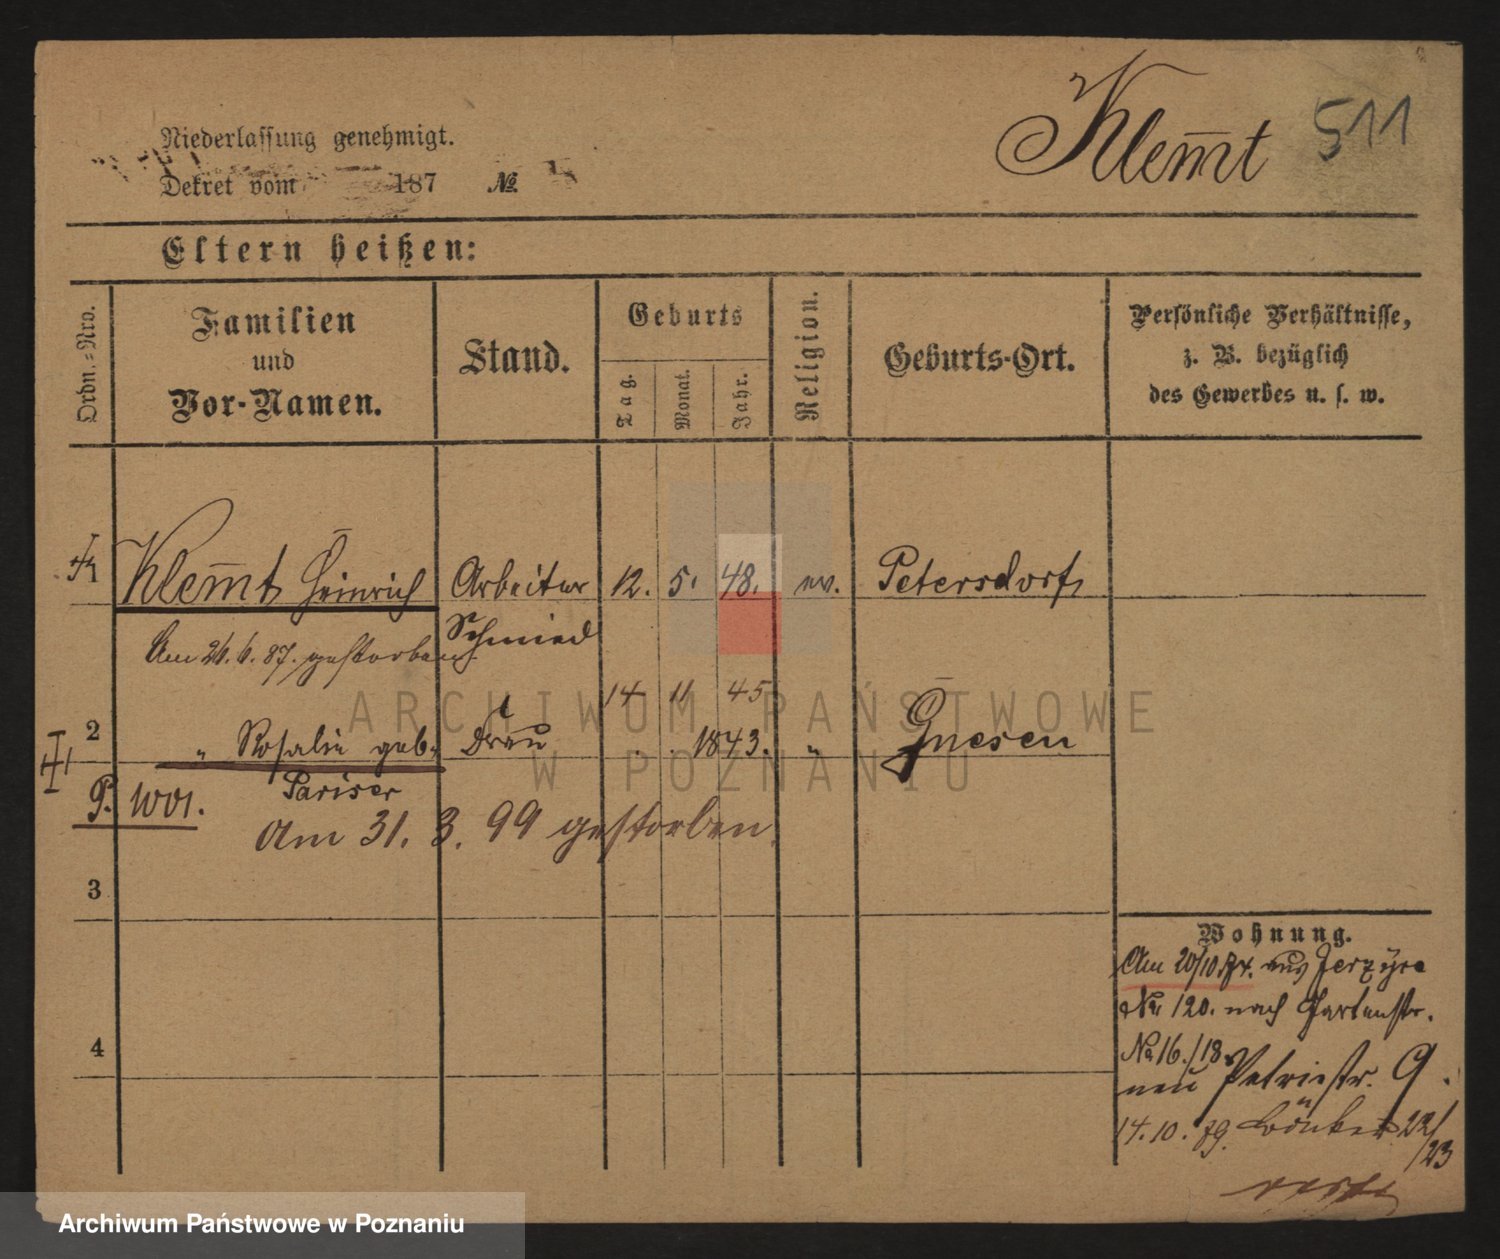 Klem̅t 511
Niederlassung genehmigt.
Dekret vom 187 №
Eltern heißen:
Ordn.=Nro.
Familien
und
Vor-Namen.
Stand.
Geburts
Tag.
Monat.
Jahr.
Religion.
Geburts-Ort.
Persönliche Verhältnisse,
z. B. bezüglich
des Gewerbes u. s. w.
1 Klem̅t Heinrich Arbeiter 12. 5. 48. ev. Petersdorf
Schmied
Am 26.6.87. gestorben
14 11 45
2 " Rosalie geb. Frau 1843. " Gnesen
Pariser
P. 1001.
Am 31. 3. 99 gestorben.
3
4
Wohnung.
Am 20/10 74. aus Jerzyce
No 120. nach Gartenstr.
No 16./18.
neu Petristr. 9.
14.10.79. 22/
23
ARCHIWUM PAŃSTWOWE
W POZNANIU
Archiwum Państwowe w Poznaniu